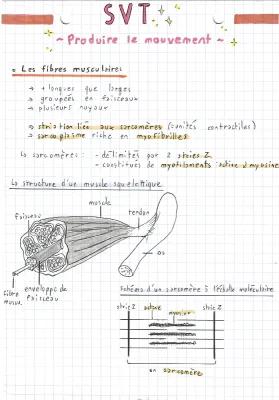 SVT
~ Produire le mouvement ~
• Les fibres musculaires
→ + longues que larges
→ groupées en faisceaux
→ plusieurs noyaux
→ striation liée aux sarcomères (unités contractiles)
→ sarcoplasme riche en myofibrilles
↳ sarcomères : - délimités par 2 stries Z
- constitués de myofilaments actine & myosine
La structure d'un muscle squelettique
muscle
tendon
faisceau
os
enveloppe de faisceau
fibre muscu.
Schéma d'un sarcomère à l'échelle moléculaire
strie Z actine strie Z
myosine
un sarcomère